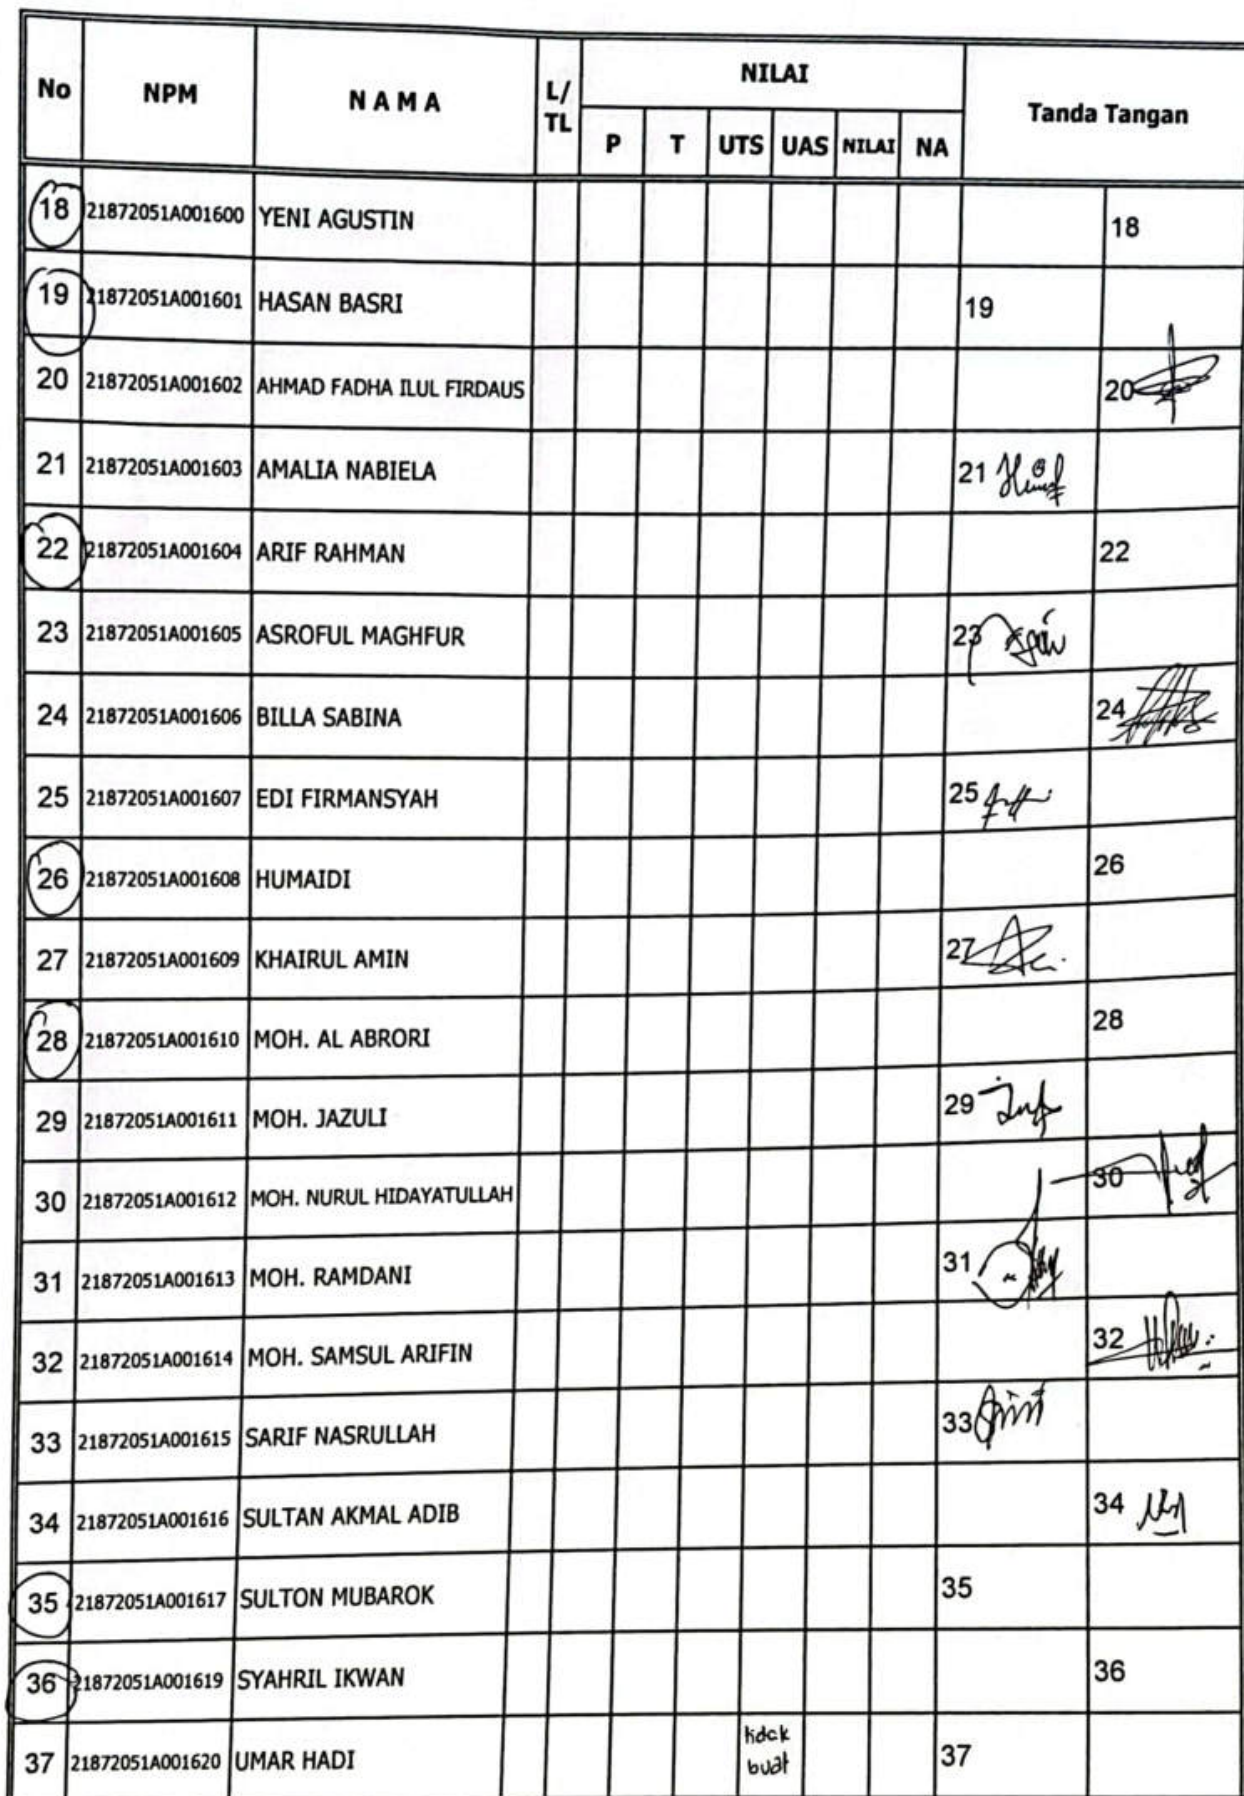 No NPM N A M A L/ TL NILAI Tanda Tangan
P T UTS UAS NILAI NA
18 21872051A001600 YENI AGUSTIN 18
19 21872051A001601 HASAN BASRI 19
20 21872051A001602 AHMAD FADHA ILUL FIRDAUS 20
21 21872051A001603 AMALIA NABIELA 21
22 21872051A001604 ARIF RAHMAN 22
23 21872051A001605 ASROFUL MAGHFUR 23
24 21872051A001606 BILLA SABINA 24
25 21872051A001607 EDI FIRMANSYAH 25
26 21872051A001608 HUMAIDI 26
27 21872051A001609 KHAIRUL AMIN 27
28 21872051A001610 MOH. AL ABRORI 28
29 21872051A001611 MOH. JAZULI 29
30 21872051A001612 MOH. NURUL HIDAYATULLAH 30
31 21872051A001613 MOH. RAMDANI 31
32 21872051A001614 MOH. SAMSUL ARIFIN 32
33 21872051A001615 SARIF NASRULLAH 33
34 21872051A001616 SULTAN AKMAL ADIB 34
35 21872051A001617 SULTON MUBAROK 35
36 21872051A001619 SYAHRIL IKWAN 36
37 21872051A001620 UMAR HADI tidak buat 37